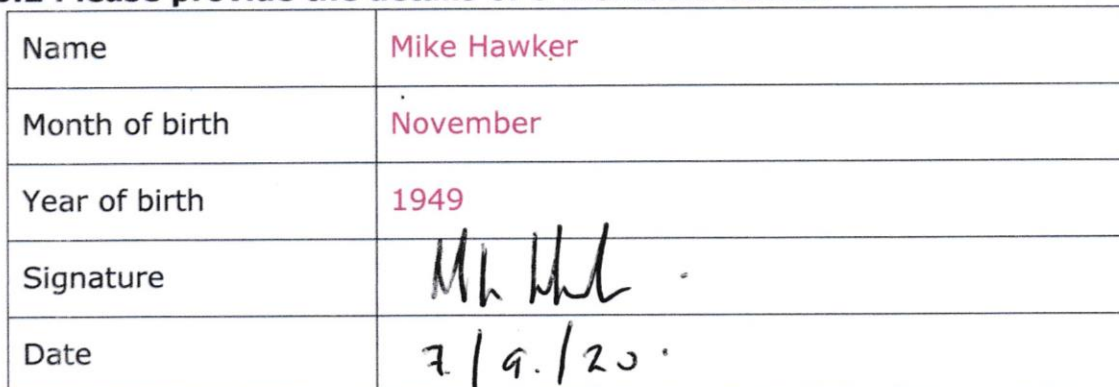 Name Mike Hawker
Month of birth November
Year of birth 1949
Signature
Date 7/9./20.